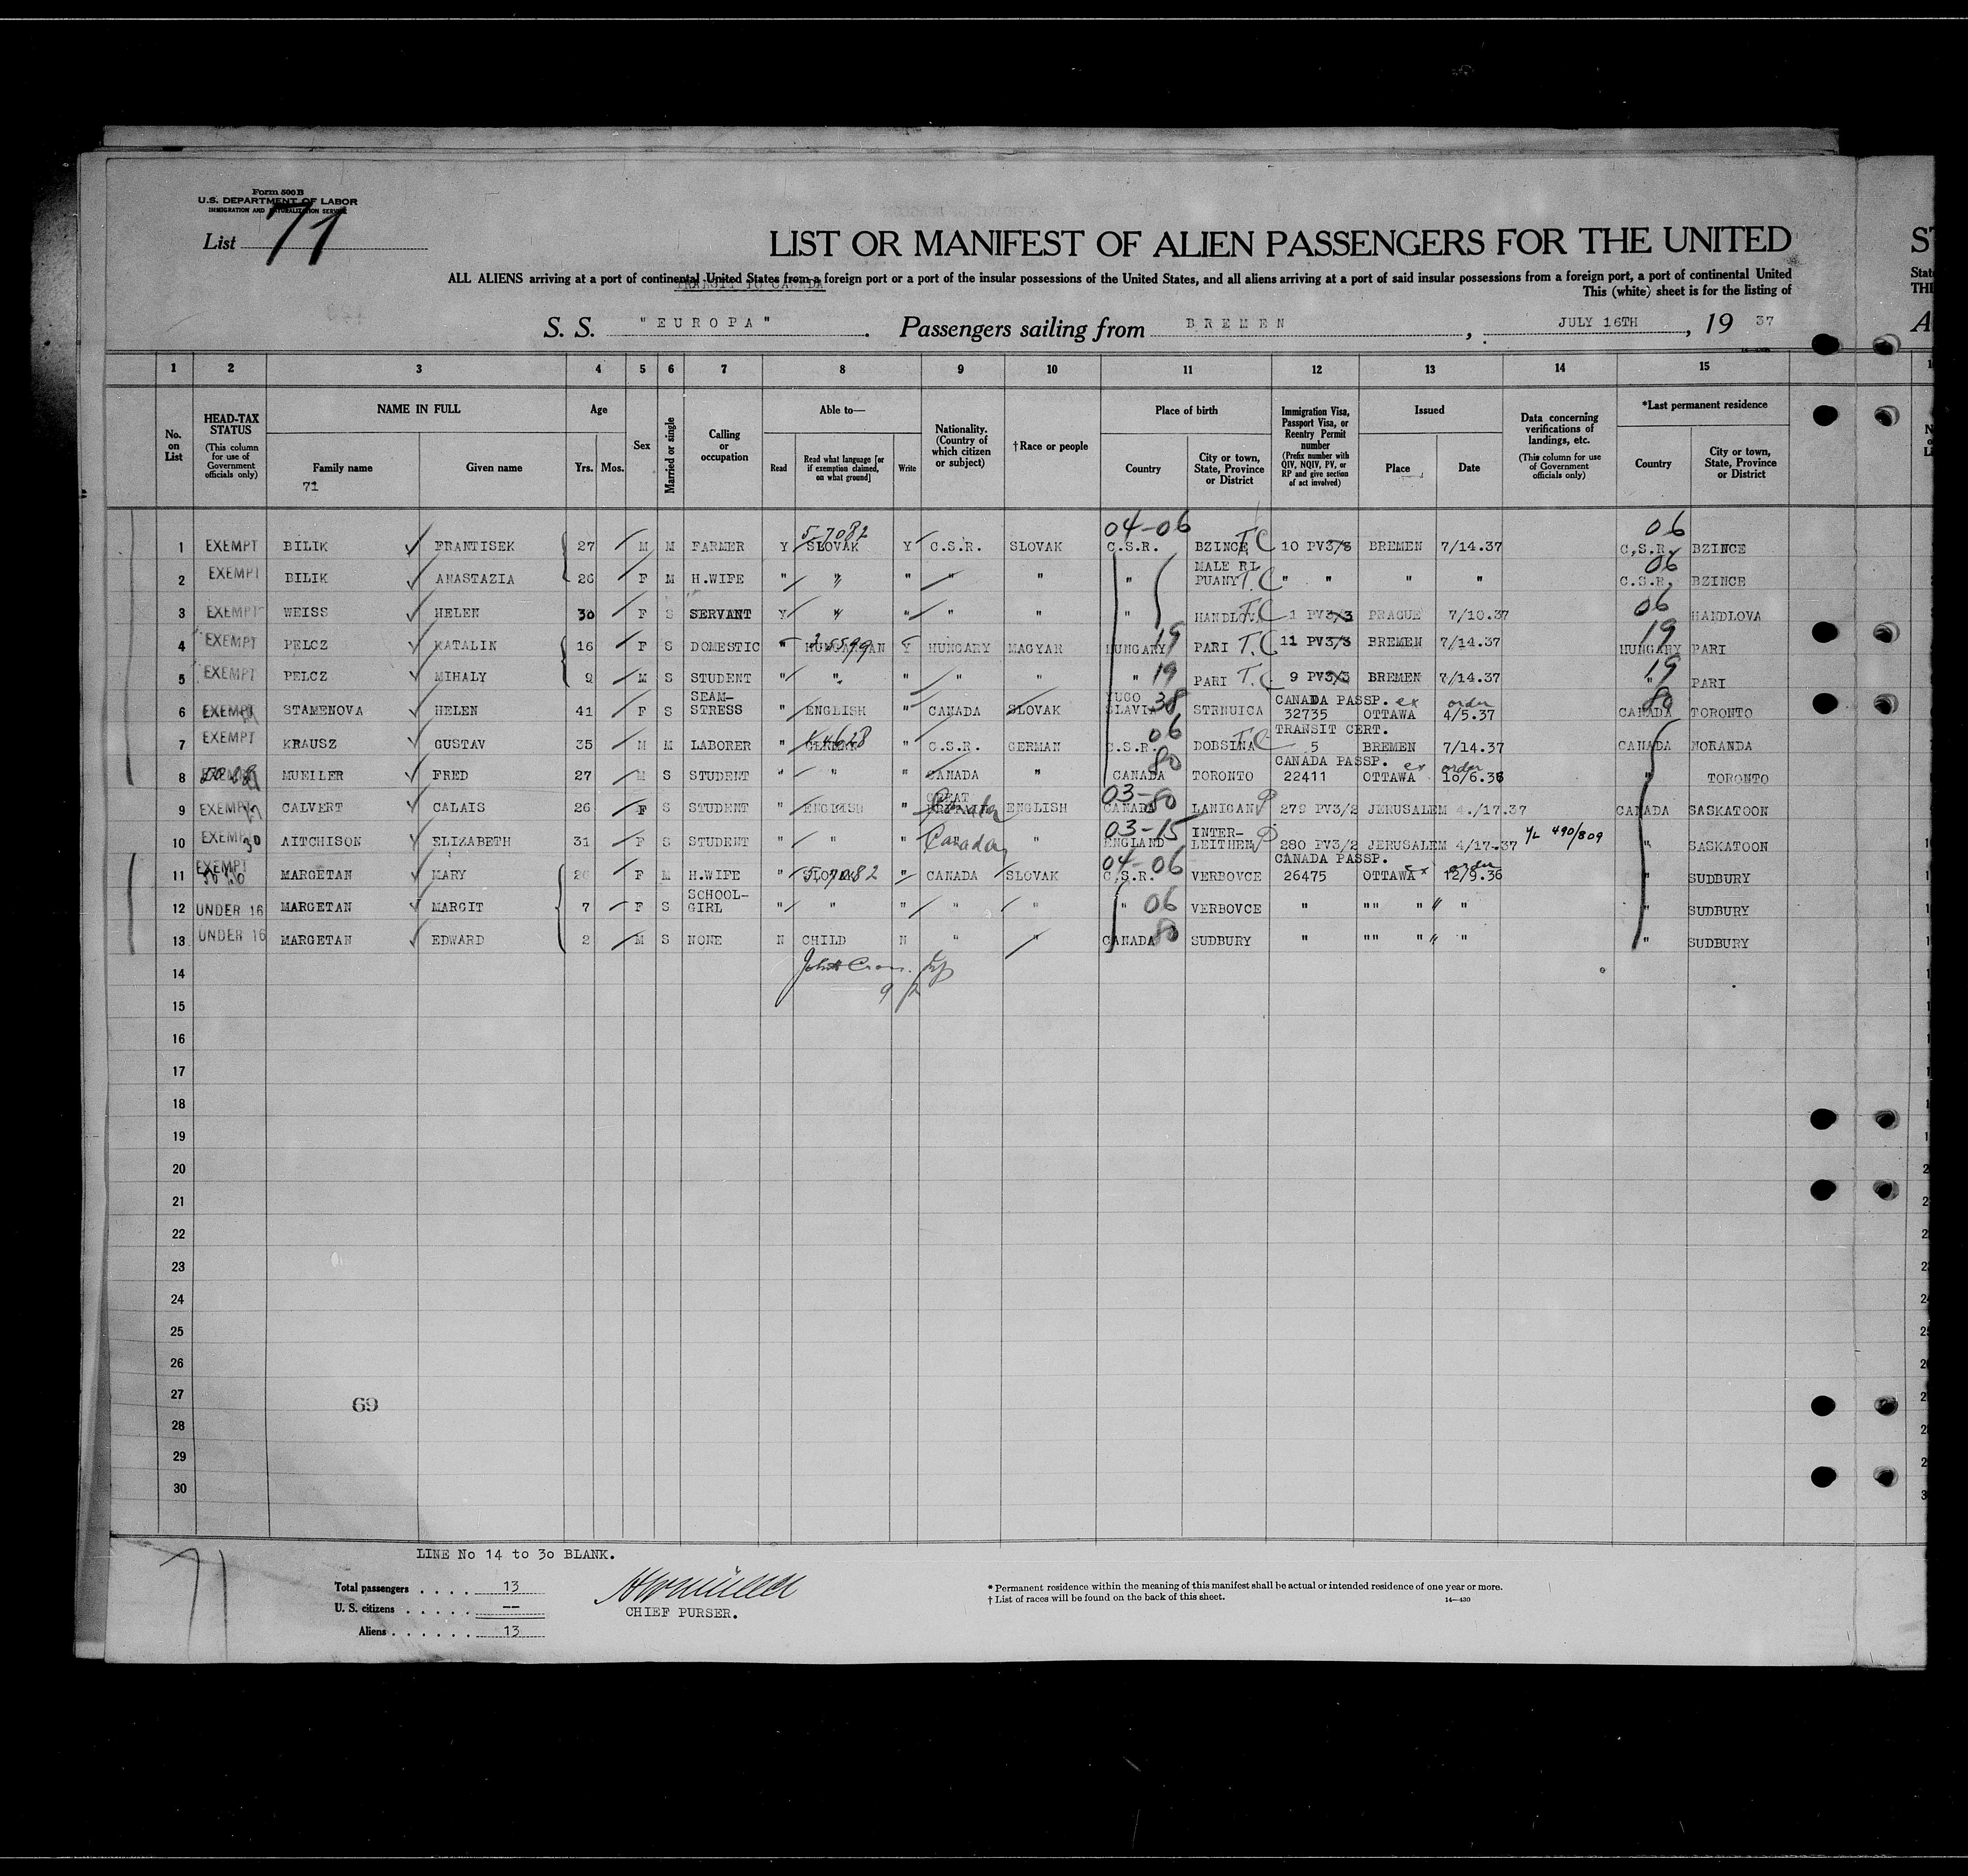 Form 500 B
U.S. DEPARTMENT OF LABOR
IMMIGRATION AND NATURALIZATION SERVICE
List 71
LIST OR MANIFEST OF ALIEN PASSENGERS FOR THE UNITED
ST
ALL ALIENS arriving at a port of continental United States from a foreign port or a port of the insular possessions of the United States, and all aliens arriving at a port of said insular possessions from a foreign port, a port of continental United
TRANSIT TO CANADA
This (white) sheet is for the listing of
S. S. "EUROPA" . Passengers sailing from BREMEN , JULY 16TH , 19 37
1 2 3 4 5 6 7 8 9 10 11 12 13 14 15
No. on List
HEAD-TAX STATUS (This column for use of Government officials only)
NAME IN FULL
Family name Given name
71
Age
Yrs. Mos.
Sex
Married or single
Calling or occupation
Able to—
Read Read what language [or if exemption claimed, on what ground] Write
Nationality. (Country of which citizen or subject)
† Race or people
Place of birth
Country City or town, State, Province or District
Immigration Visa, Passport Visa, or Reentry Permit number (Prefix number with QIV, NQIV, PV, or RP and give section of act involved)
Issued
Place Date
Data concerning verifications of landings, etc. (This column for use of Government officials only)
*Last permanent residence
Country City or town, State, Province or District
5-7082 04-06 06
1 EXEMPT BILIK FRANTISEK 27 M M FARMER Y SLOVAK Y C.S.R. SLOVAK C.S.R. BZINCE T.C 10 PV3/3 BREMEN 7/14.37 C.S.R. BZINCE
2 EXEMPT BILIK ANASTAZIA 26 F M H.WIFE " " " " " " MALE RI PUANY T.C " " " " 06 C.S.R. BZINCE
3 EXEMPT WEISS HELEN 30 F S SERVANT Y " " " " " HANDLOVA T.C 1 PV3/3 PRAGUE 7/10.37 06 HANDLOVA
4 EXEMPT PELCZ KATALIN 16 F S DOMESTIC " HUNGARIAN Y HUNGARY MAGYAR HUNGARY 19 PARI T.C 11 PV3/3 BREMEN 7/14.37 19 HUNGARY PARI
5 EXEMPT PELCZ MIHALY 9 M S STUDENT " " " " " " 19 PARI T.C 9 PV3/3 BREMEN 7/14.37 19 " PARI
6 EXEMPT STAMENOVA HELEN 41 F S SEAM-STRESS " ENGLISH " CANADA SLOVAK YUGO SLAVIA 38 STRNUICA CANADA PASSP. ex order 32735 OTTAWA 4/5.37 80 CANADA TORONTO
7 EXEMPT KRAUSZ GUSTAV 35 M M LABORER " GERMAN " C.S.R. GERMAN C.S.R. 06 DOBSINA T.C TRANSIT CERT. 5 BREMEN 7/14.37 CANADA NORANDA
8 EXEMPT MUELLER FRED 27 M S STUDENT " " " CANADA " 80 CANADA TORONTO CANADA PASSP. ex order 22411 OTTAWA 10/6.36 " TORONTO
9 EXEMPT CALVERT CALAIS 26 F S STUDENT " ENGLISH " GREAT Canada ENGLISH 03-80 CANADA LANIGAN 279 PV3/2 JERUSALEM 4./17.37 CANADA SASKATOON
10 EXEMPT 30 AITCHISON ELIZABETH 31 F S STUDENT " " " Canada " 03-15 ENGLAND INTER-LEITHEN 280 PV3/2 JERUSALEM 4/17.37 490/809 " SASKATOON
11 EXEMPT MARGETAN MARY 26 F M H.WIFE " 5,7082 " CANADA SLOVAK 04-06 C.S.R. VERBOVCE CANADA PASSP. ex order 26475 OTTAWA 12/9.36 " SUDBURY
12 UNDER 16 MARGETAN MARGIT 7 F S SCHOOL-GIRL " " " " " " 06 VERBOVCE " "" " " " " SUDBURY
13 UNDER 16 MARGETAN EDWARD 2 M S NONE N CHILD N " " CANADA 80 SUDBURY " "" " " " " SUDBURY
14
15
16
17
18
19
20
21
22
23
24
25
26
27
69
28
29
30
LINE No 14 to 30 BLANK.
71
Total passengers . . . . 13
U. S. citizens . . . . . --
Aliens . . . . . . 13
CHIEF PURSER.
* Permanent residence within the meaning of this manifest shall be actual or intended residence of one year or more.
† List of races will be found on the back of this sheet.
14—430